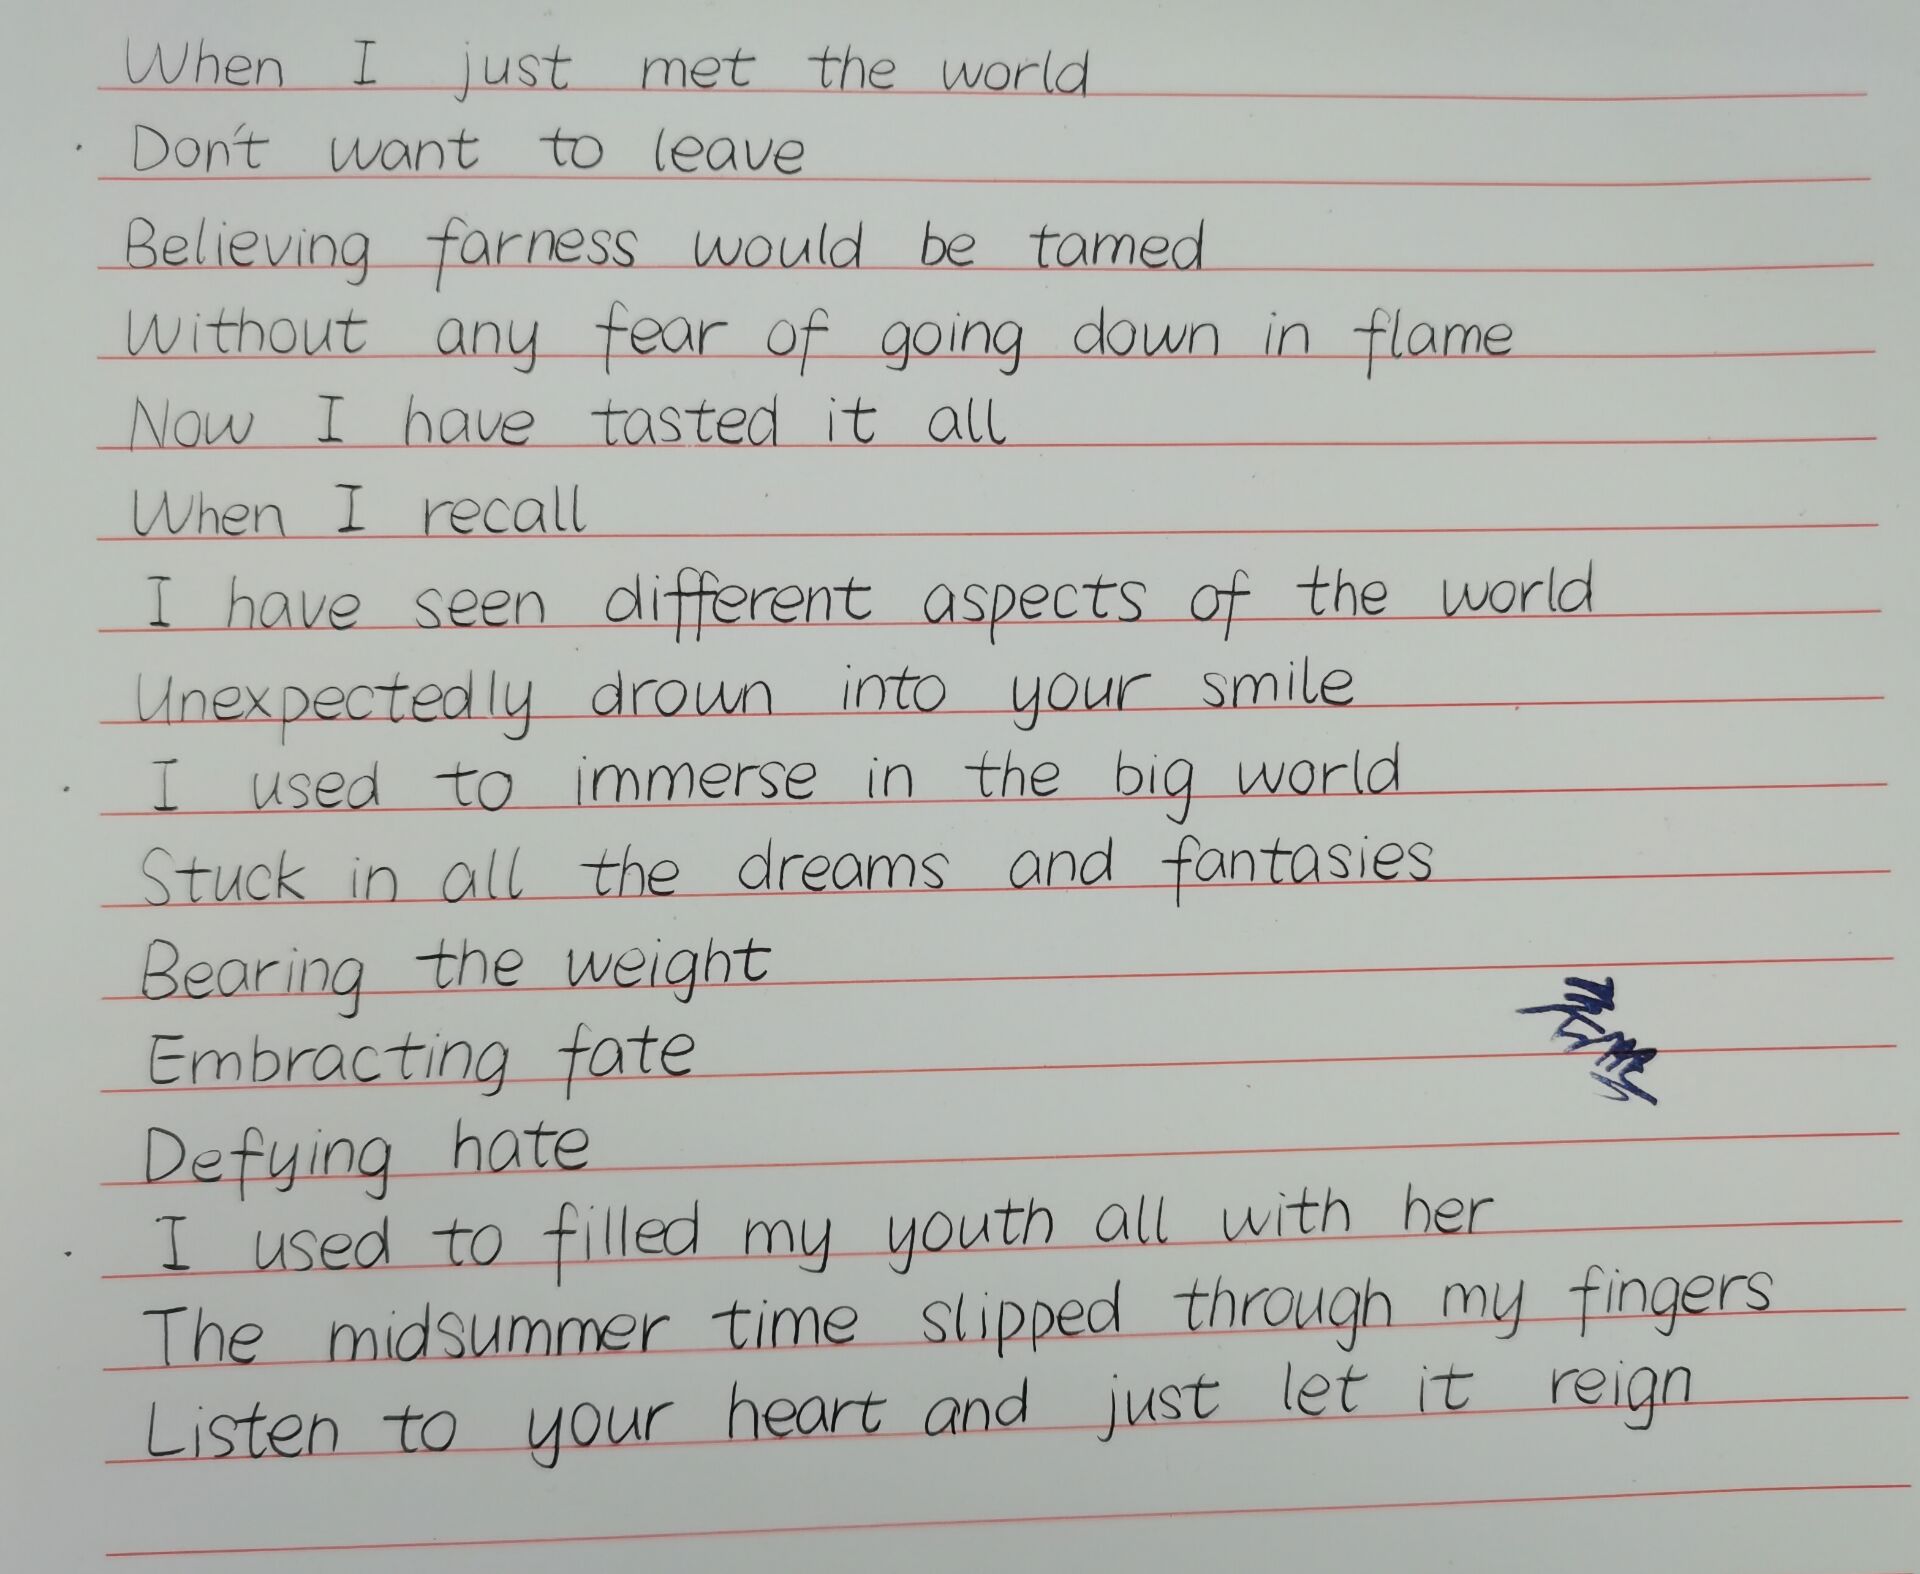 When I just met the world
Don't want to leave
Believing farness would be tamed
Without any fear of going down in flame
Now I have tasted it all
When I recall
I have seen different aspects of the world
Unexpectedly drown into your smile
I used to immerse in the big world
Stuck in all the dreams and fantasies
Bearing the weight
Embracting fate
Defying hate
I used to filled my youth all with her
The midsummer time slipped through my fingers
Listen to your heart and just let it reign